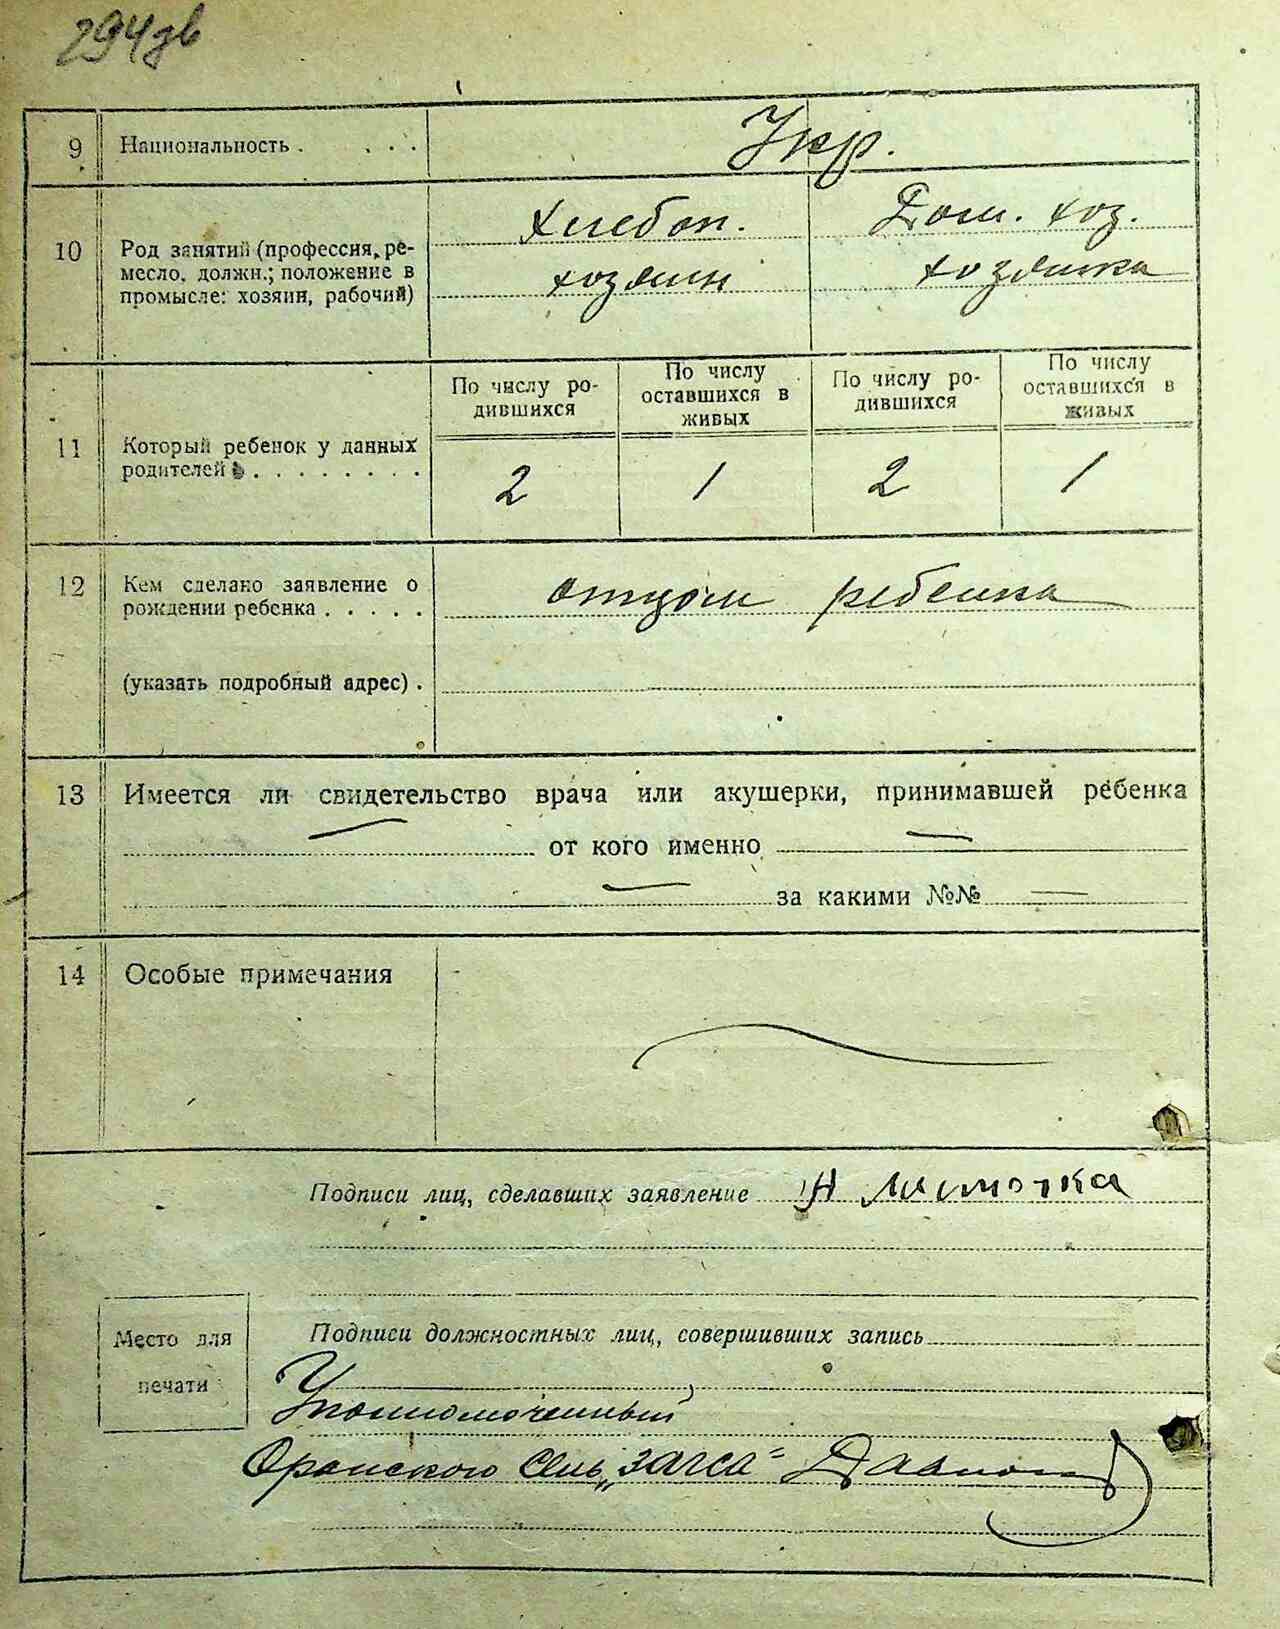 294зв
9 Национальность . . . . Укр.
10 Род занятий (профессия, ре-
месло, должн.; положение в
промысле: хозяин, рабочий)
Хлебоп. Дом. хоз.
хозяин хозяйка
11 Который ребенок у данных
родителей . . . . . . . .
По числу ро-
дившихся
По числу
оставшихся в
живых
По числу ро-
дившихся
По числу
оставшихся в
живых
2 1 2 1
12 Кем сделано заявление о
рождении ребенка . . . . .
отцом ребенка
(указать подробный адрес) .
13 Имеется ли свидетельство врача или акушерки, принимавшей ребенка
— от кого именно —
— за какими №№ —
14 Особые примечания
Подписи лиц, сделавших заявление Н
Место для
печати
Подписи должностных лиц, совершивших запись
Уполномоченный
Оранского Сель „загса"